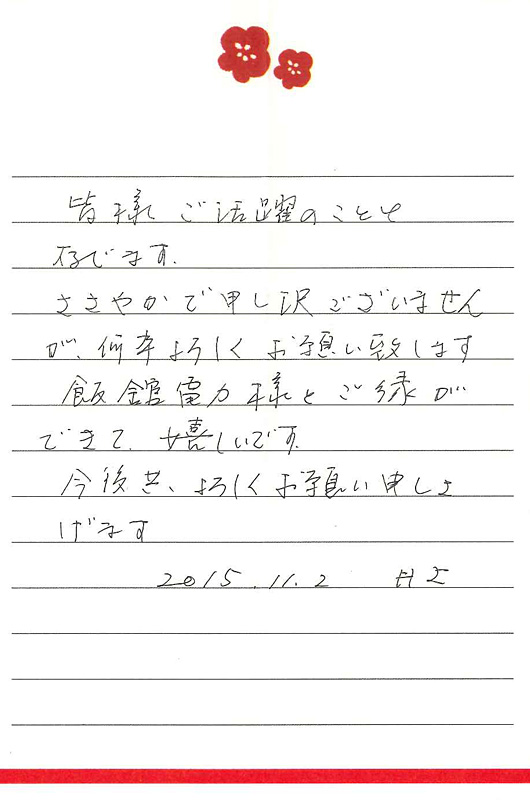 皆様 ご活躍のことと
存じます.
ささやかで申し訳ございません
が、何卒よろしくお願い致します
飯館電力様とご縁が
できて、嬉しいです.
今後共、よろしくお願い申し上
げます
2015.11.2